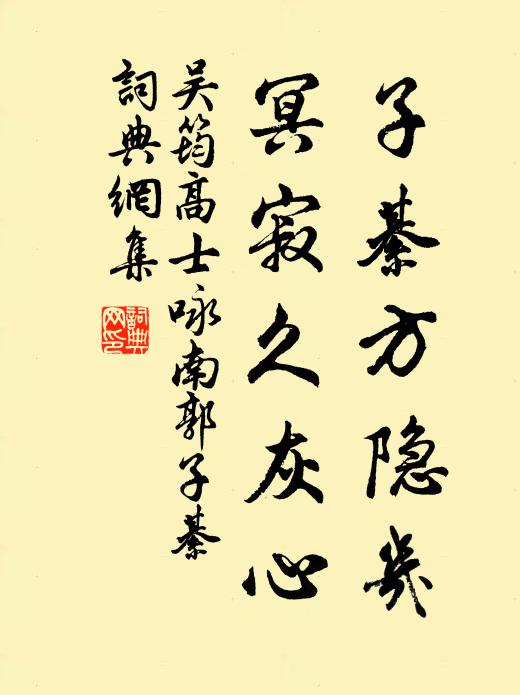 子綦方隐几
冥寂久灰心
吴筠高士咏南郭子綦
詞典網集
詞典网印